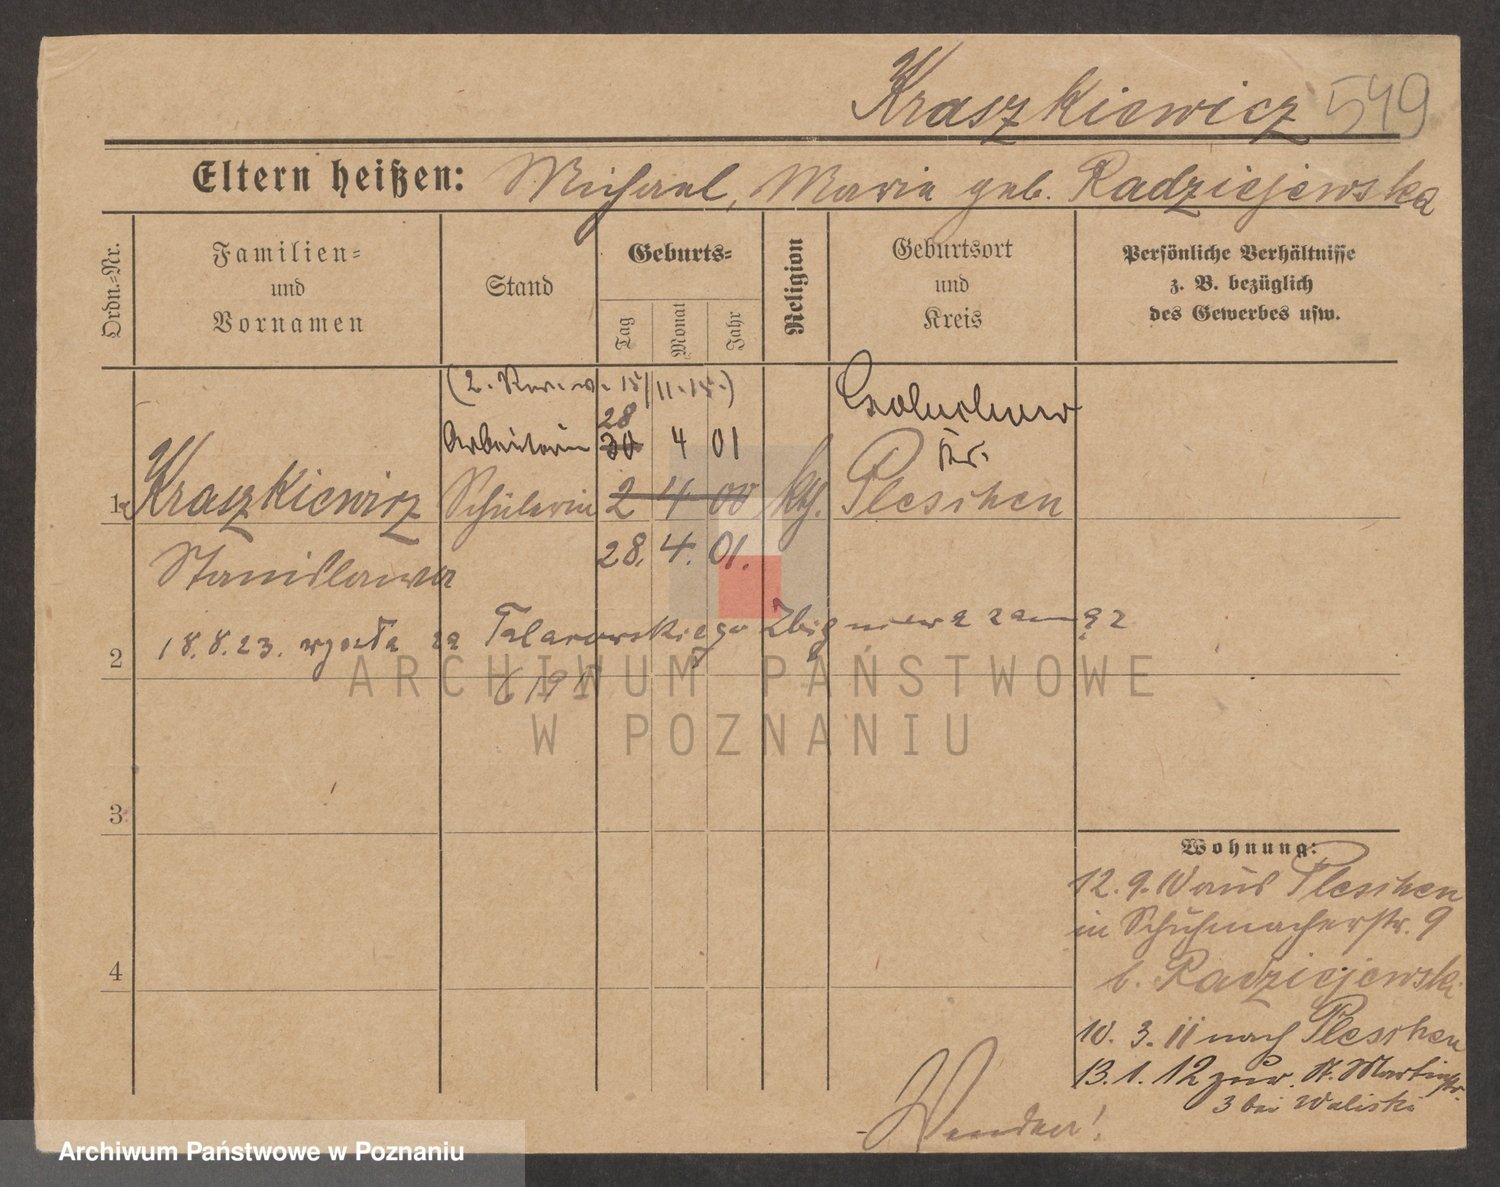 Kraszkiewicz 549
Eltern heißen: Michael, Maria geb. Radziejewska
Ordn.-Nr.
Familien-
und
Vornamen
Stand
Geburts-
Tag
Monat
Jahr
Religion
Geburtsort
und
Kreis
Persönliche Verhältnisse
z. B. bezüglich
des Gewerbes usw.
15/11.15.)
28
Arbeiterin 30 4 01
Kr.
1 Kraszkiewicz Schülerin 2 4 00 kth. Pleschen
Stanislawa 28. 4. 01.
2 18.8.23. wyszła za Talarowskiego Zbigniewa zamąż
3
4
Wohnung:
12. 9. 10 aus Pleschen
in Schuhmacherstr. 9
b. Radziejewski
10. 3. 11 nach Pleschen
13. 1. 12 zur. St. Martinstr.
3 bei Waliski
Wenden!
ARCHIWUM PAŃSTWOWE
W POZNANIU
Archiwum Państwowe w Poznaniu